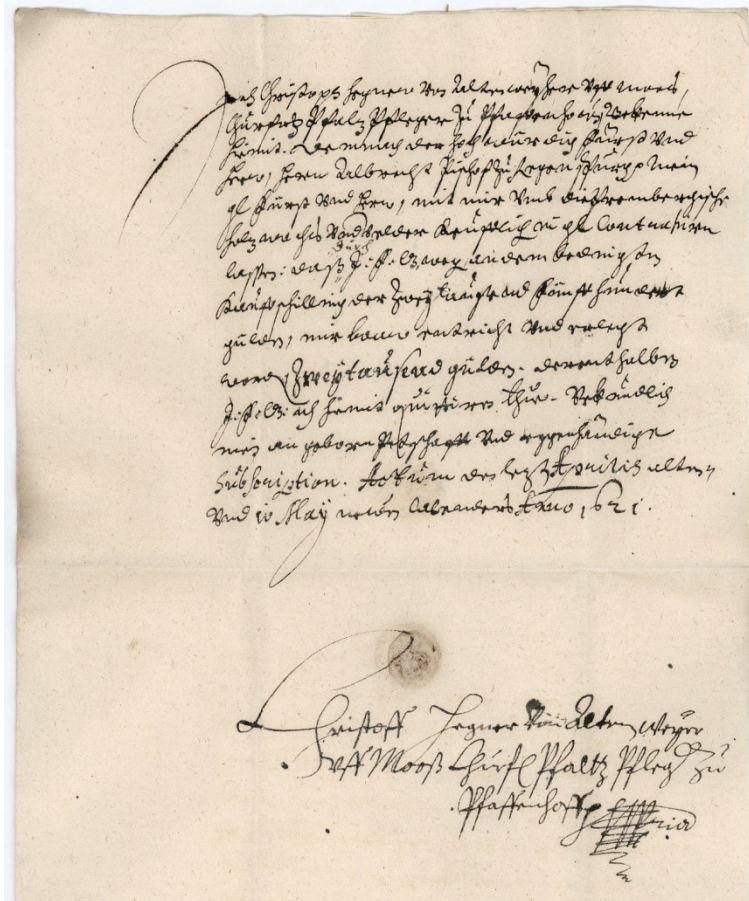 Ich Christoph Hegner von Altenweyher vff Moos,
Churfr. Pfaltz Pfleger zu Pfaffenhoffen Bekenne
hiemit. Demnach der Hochwürdig Fürst vnd
Herr, Herr Albrecht Bischof zu Regenspurg mein
gl Fürst vnd Herr, mit mir vmb die
holzwachs vnd velder Keufflich
lassen: daß durch J: F: G: wegen an dem bedingten
Kauffschilling der Zwey tausend fünff hundert
gulden, mir baar entricht vnd erlegt
worden Zweytausend gulden. derenthalben
J: F: G: ich hiemit quitiren thue. Bekändlich
mein angeborn Petschafft vnd eygenhändige
Subscription. Actum den letzt Aprilis alten
vnd 10 May newen Calenders Anno 1621.
Christoff Hegner von Alten Weyer
vff Mooß Churf Pfaltz Pfleg zu
Pfaffenhoff